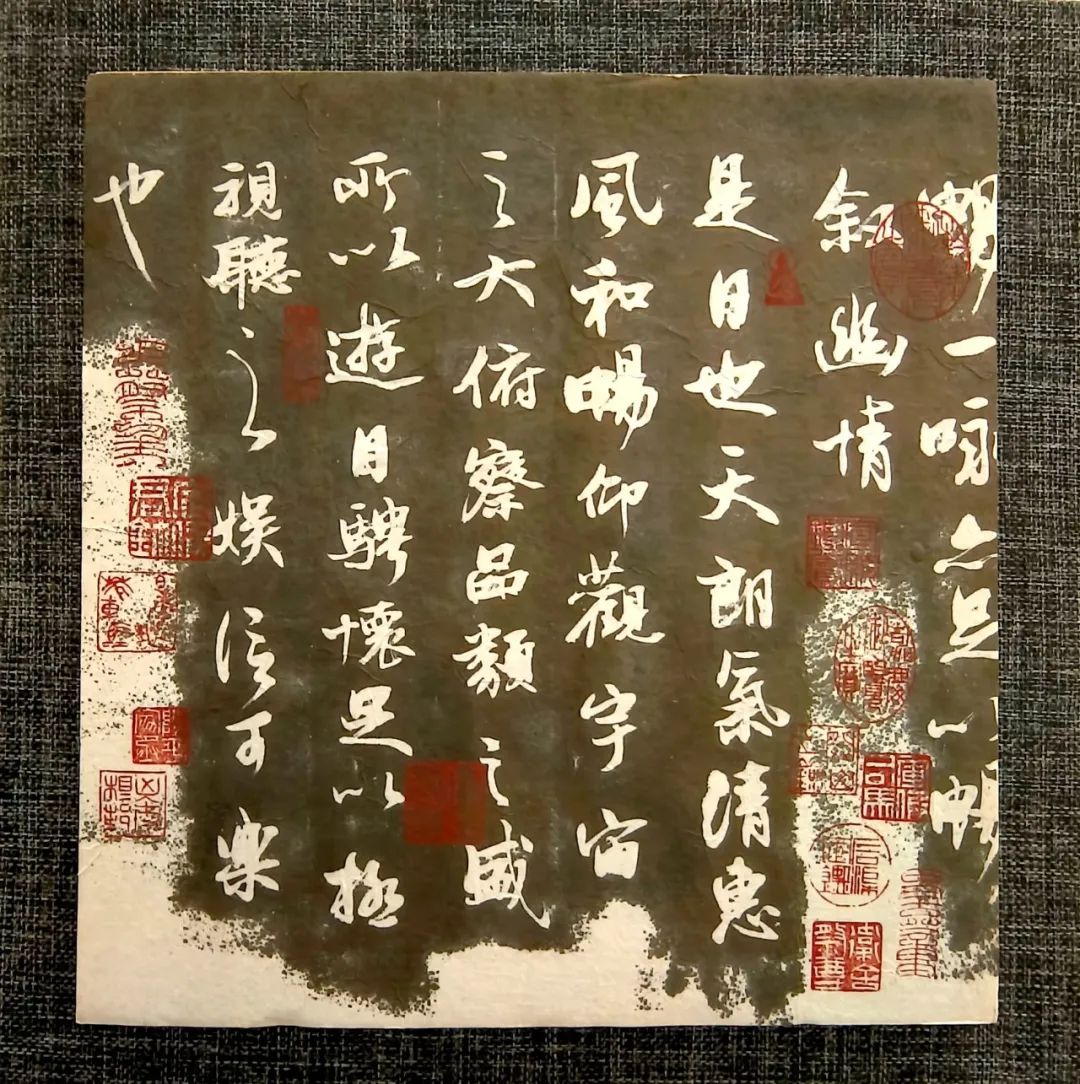 觴一詠亦足以暢
叙幽情
是日也天朗氣清惠
風和暢仰觀宇宙
之大俯察品類之盛
所以遊目騁懷足以極
視聽之娛信可樂
也